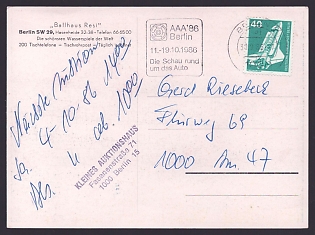 „Ballhaus Resi"
Berlin SW 29, Hasenheide 32-38 - Telefon 66 65 00
Die schönsten Wasserspiele der Welt
200 Tischtelefone — Tischrohrpost — Täglich
AAA'86
Berlin
11.-19.10.1986
Die Schau rund
um das Auto
40
Nächste Auktion
4-10.86 1400
Sa.
ab. 1000
KLEINES AUKTIONSHAUS
Fasanenstraße 71
1000 Berlin 15
Gerd Riescheck
Flurweg 69
1000 47